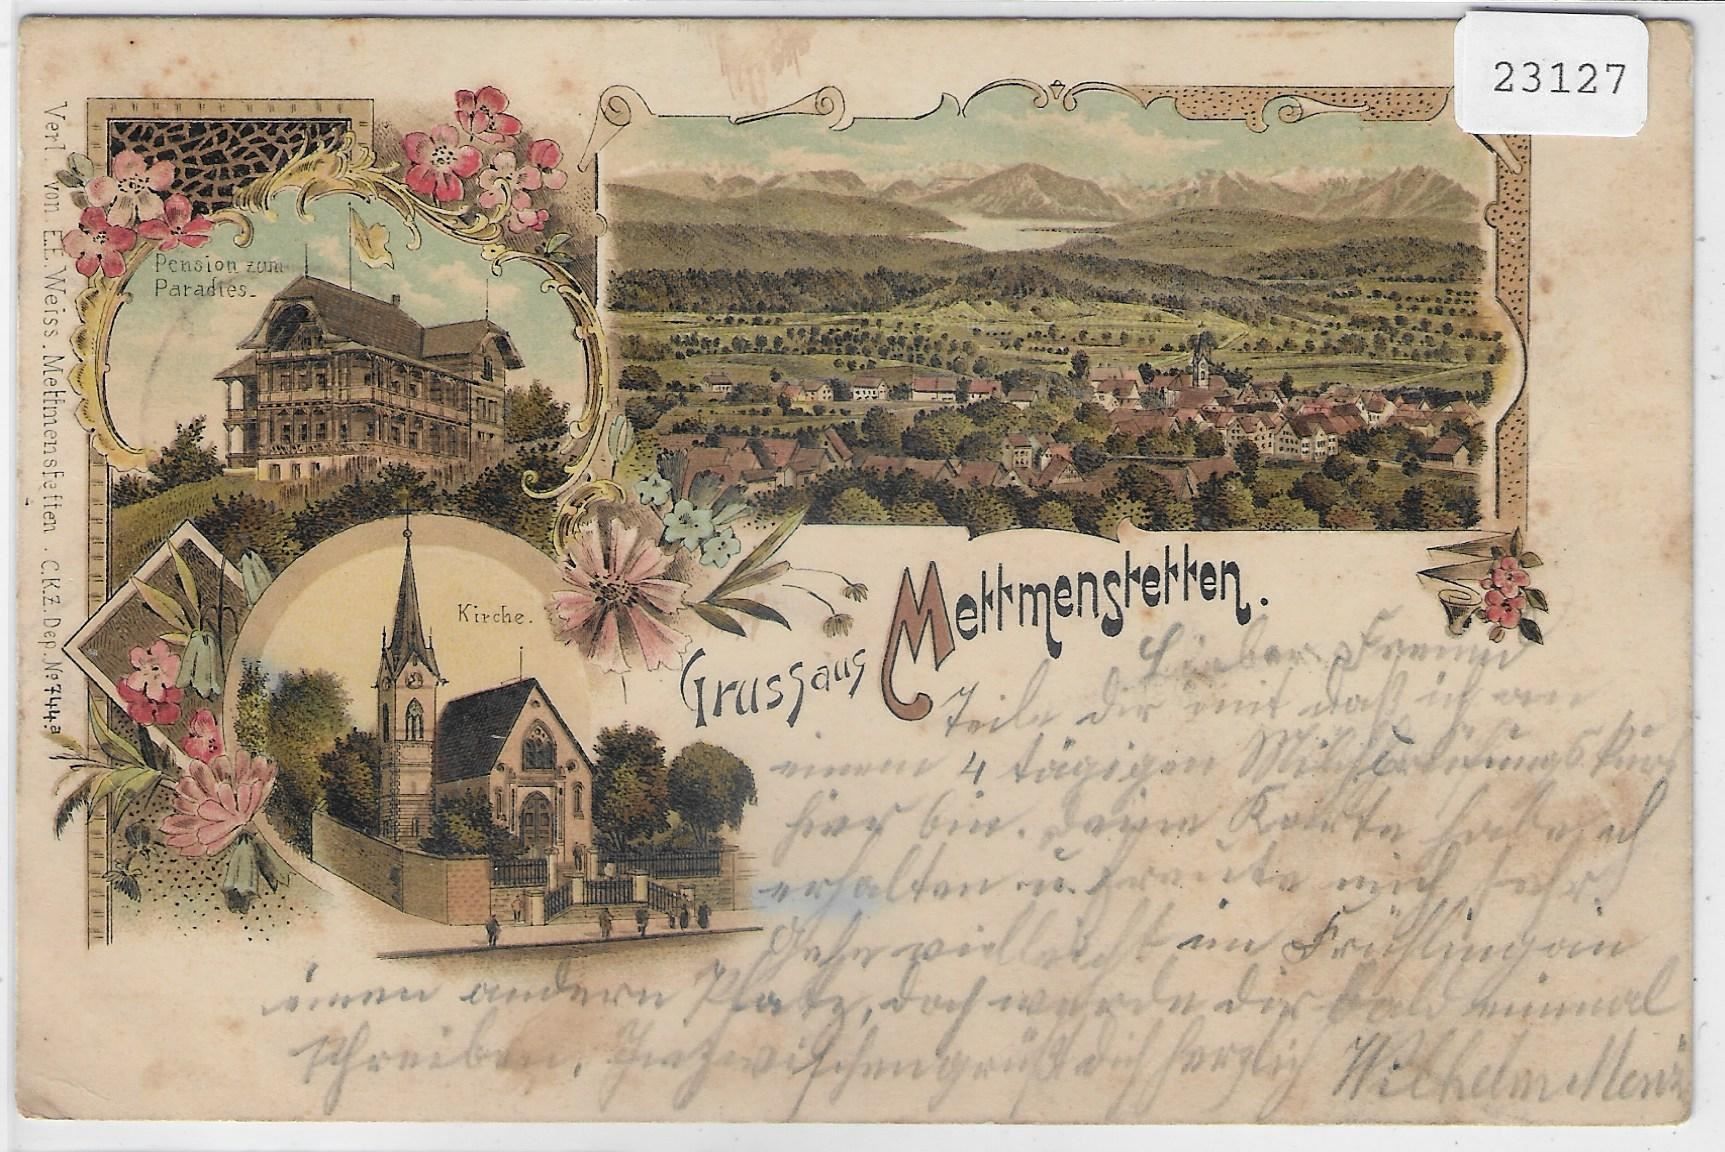 23127
Verl. von E.E. Weiss. Mettmenstetten. C.K.Z. Dep. No 744a
Pension zum
Paradies.
Kirche.
Gruss aus Mettmenstetten.
Lieber Freund
Teile dir mit daß ich an
einem 4 tägigen Milchprüfungskurs
hier bin. Deine Karte habe ich
erhalten u. freute mich sehr.
Gehe vielleicht im Frühling an
einen andern Platz, doch werde dir bald einmal
schreiben. Inzwischen grüßt dich herzlich Wilhelm